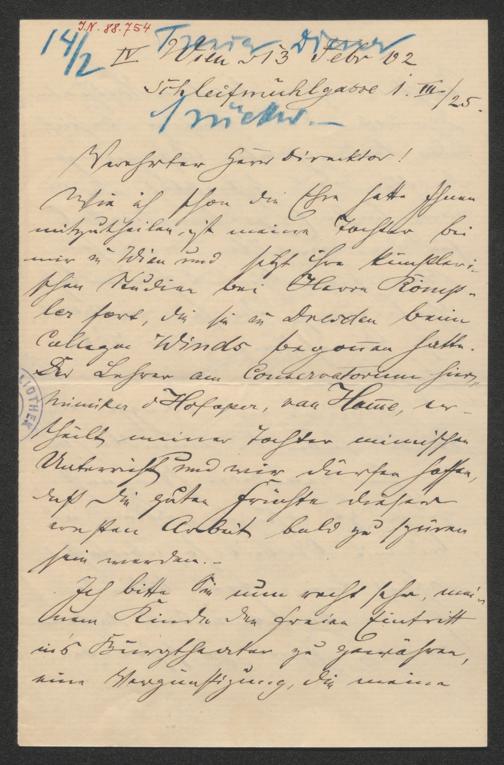 I.N. 88.754
14/2
IV Wien d 13 Febr 02
Schleifmühlgasse 1. III/25.
Verehrter Herr Direktor!
Wie ich schon die Ehre hatte Ihnen
mitzutheilen, ist meine Tochter bei
mir in Wien und setzt ihre künstleri-
schen Studien bei Herrn Römp-
ler fort, die sie in Dresden beim
Collegen Winds begonnen hatte.
Der Lehrer am Conservatorium hier,
Mimiker d Hofoper, van Hamme, er-
theilt meiner Tochter mimischen
Unterricht und wir dürfen hoffen,
daß die guten Früchte dieser
ernsten Arbeit bald zu spüren
sein werden.–
Ich bitte Sie nun recht sehr, mei-
nem Kinde den freien Eintritt
in's Burgtheater zu gewähren,
eine Vergünstigung, die meine